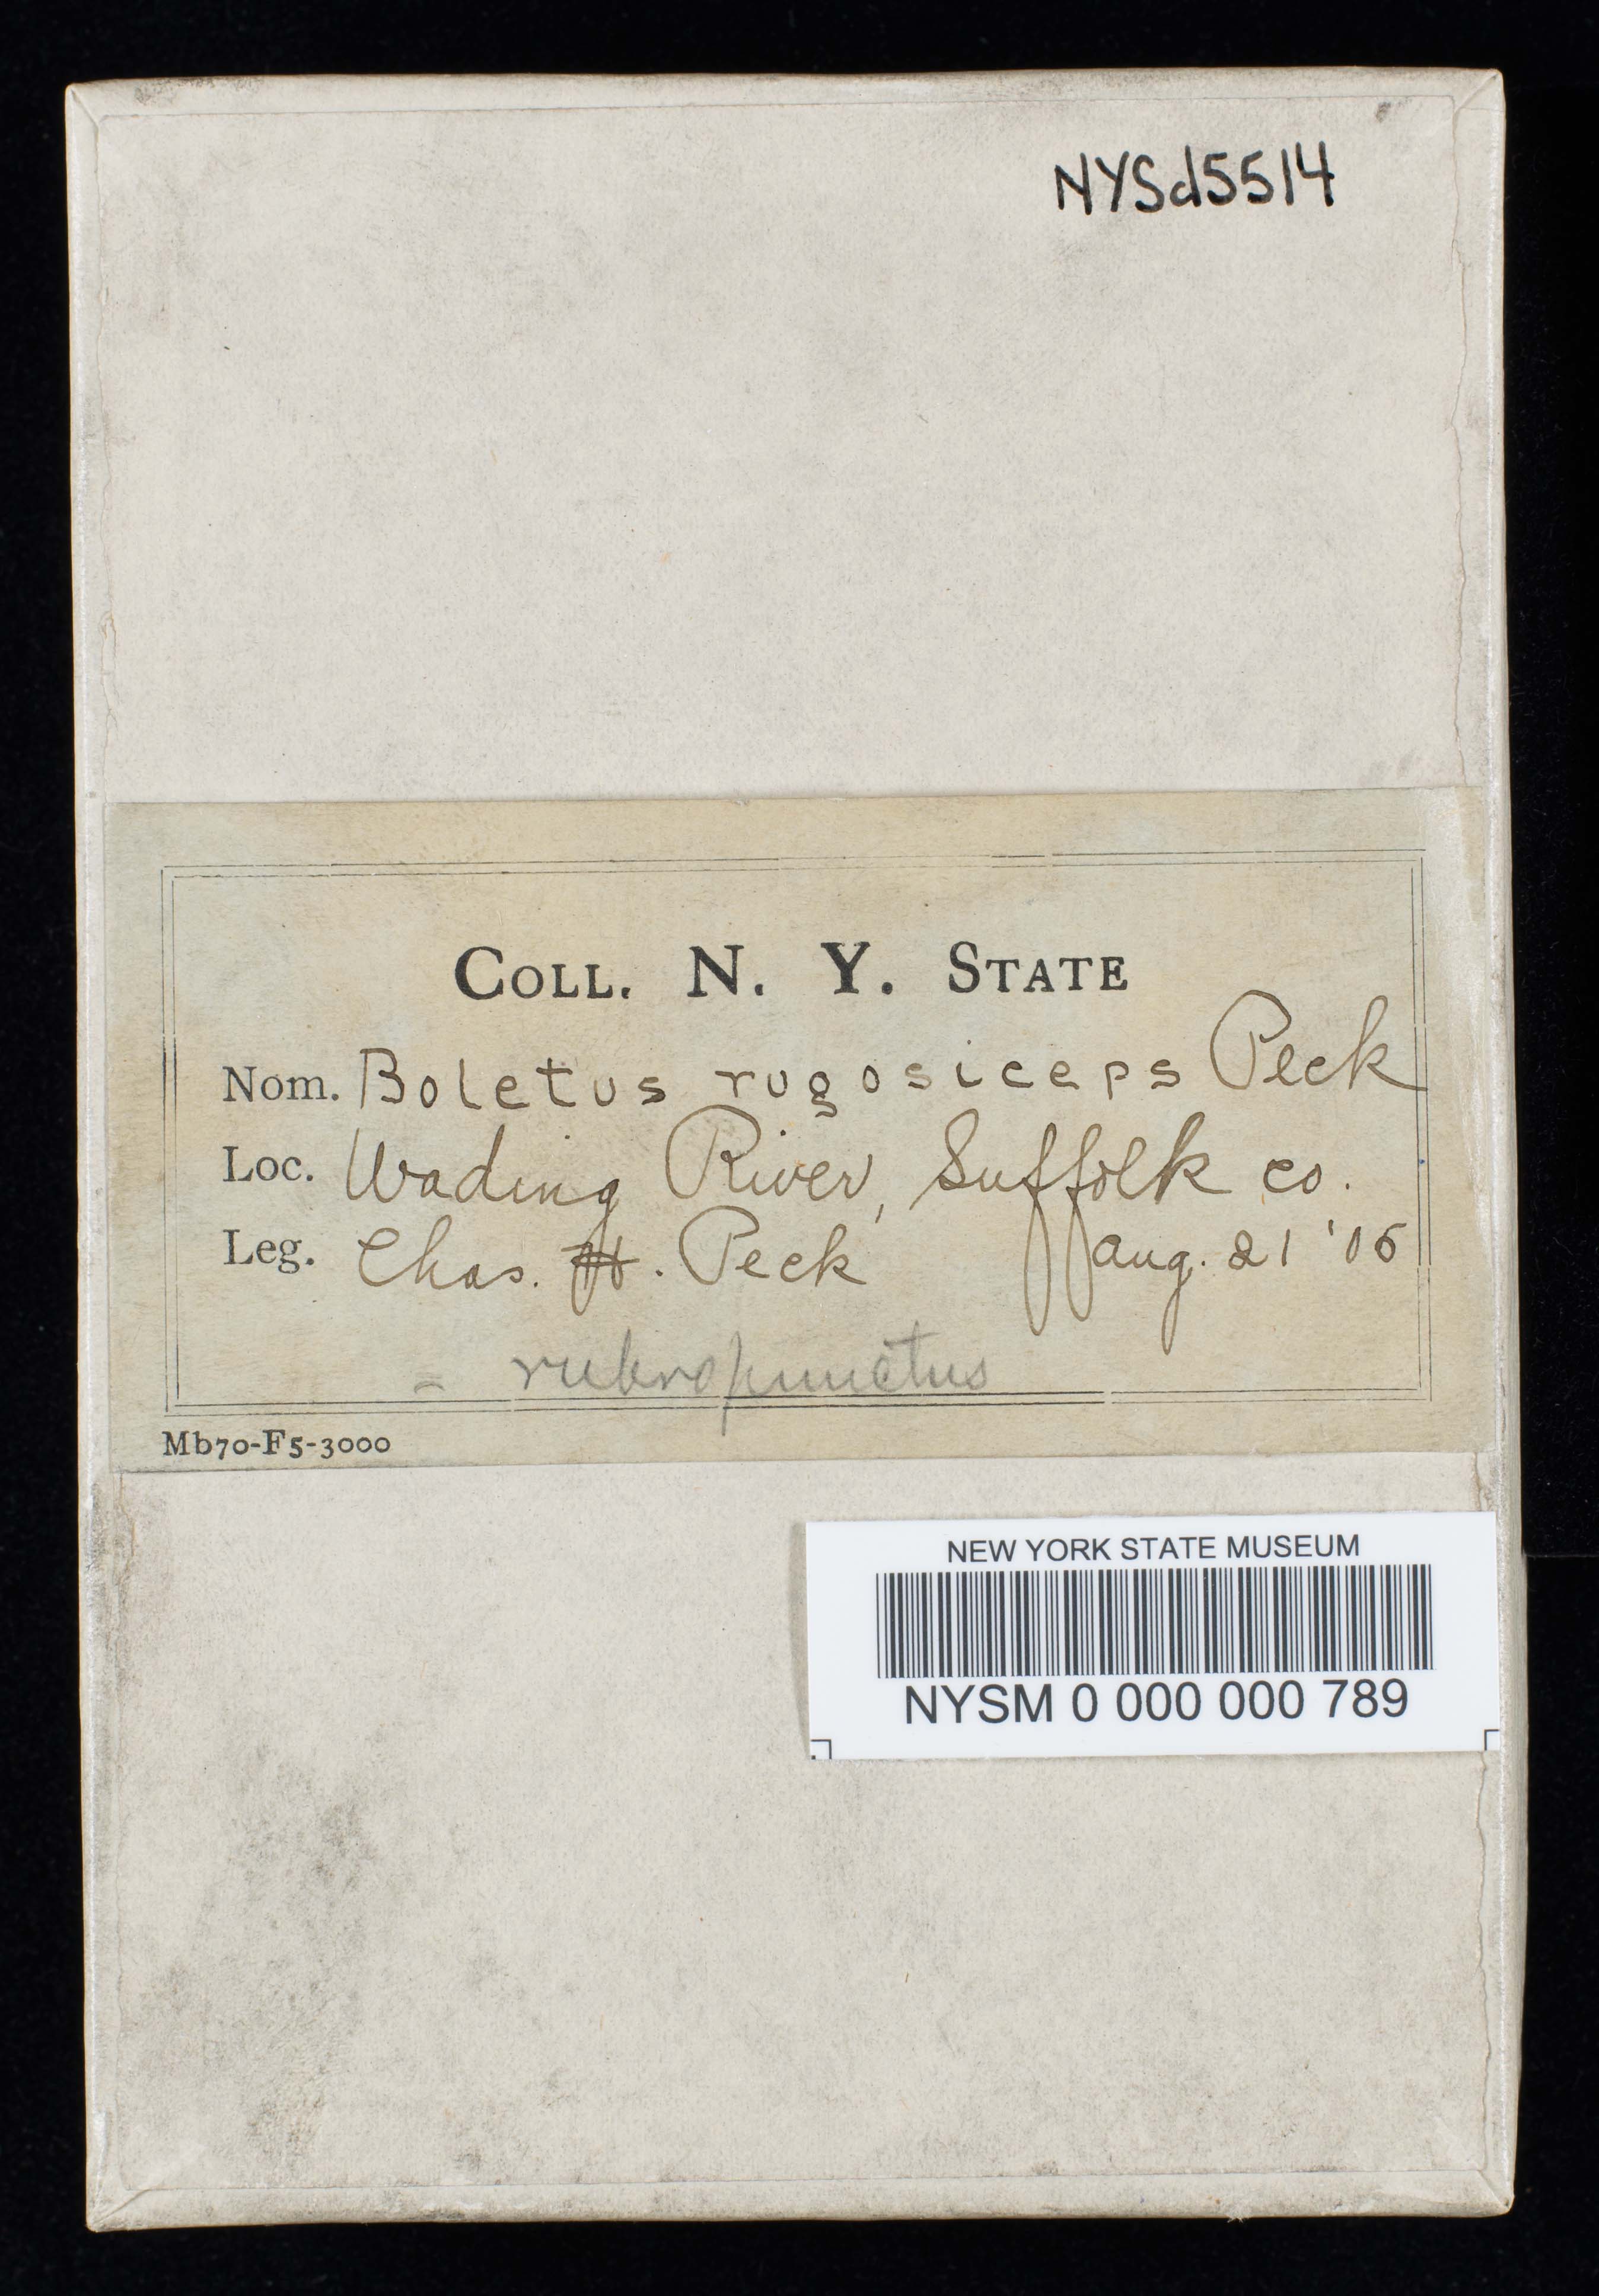 NYSd5514
COLL. N. Y. STATE
Nom. Boletus rugosiceps Peck
Loc. Wading River, Suffolk co.
Leg. Chas. H. Peck Aug. 21 '05
= rubropunctus
Mb70-F5-3000
NEW YORK STATE MUSEUM
NYSM 0 000 000 789